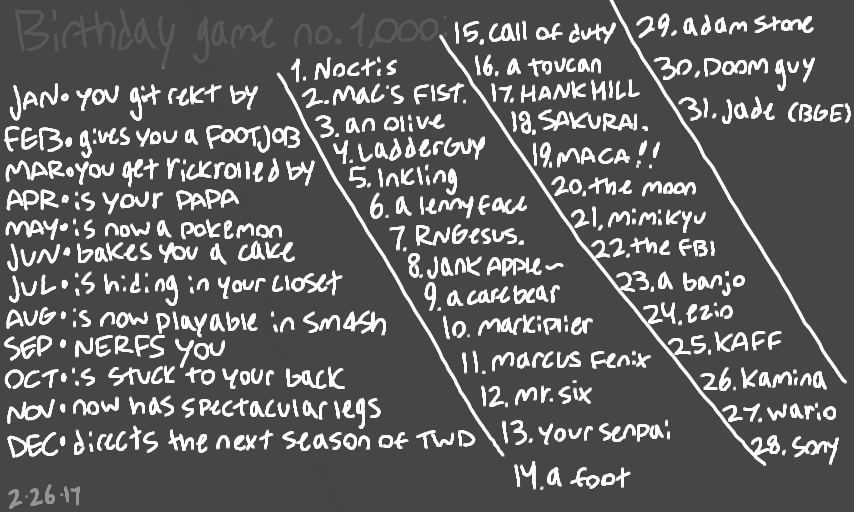 Birthday game no. 1,000;
JAN• YOU git rekt by
FEB• gives you a FOOTJOB
MAR• YOU get rickrolled by
APR• is your PAPA
MAY• is now a pokemon
JUN• bakes you a cake
JUL• is hiding in your closet
AUG• is now playable in Sm4sh
SEP• NERFS YOU
OCT• is stuck to your back
NOV• now has spectacular legs
DEC• directs the next season of TWD
1. Noctis
2. MAC'S FIST.
3. an olive
4. LadderGuy
5. Inkling
6. a lenny face
7. RNGesus.
8. JANK APPLE~
9. a care bear
10. markiplier
11. marcus Fenix
12. mr. six
13. your senpai
14. a foot
15. call of duty
16. a toucan
17. HANK HILL
18. SAKURAI.
19. MACA!!
20. the moon
21. mimikyu
22. the FBI
23. a banjo
24. ezio
25. KAFF
26. Kamina
27. wario
28. Sony
29. adam stone
30. Doom guy
31. Jade (BGE)
2-26-17